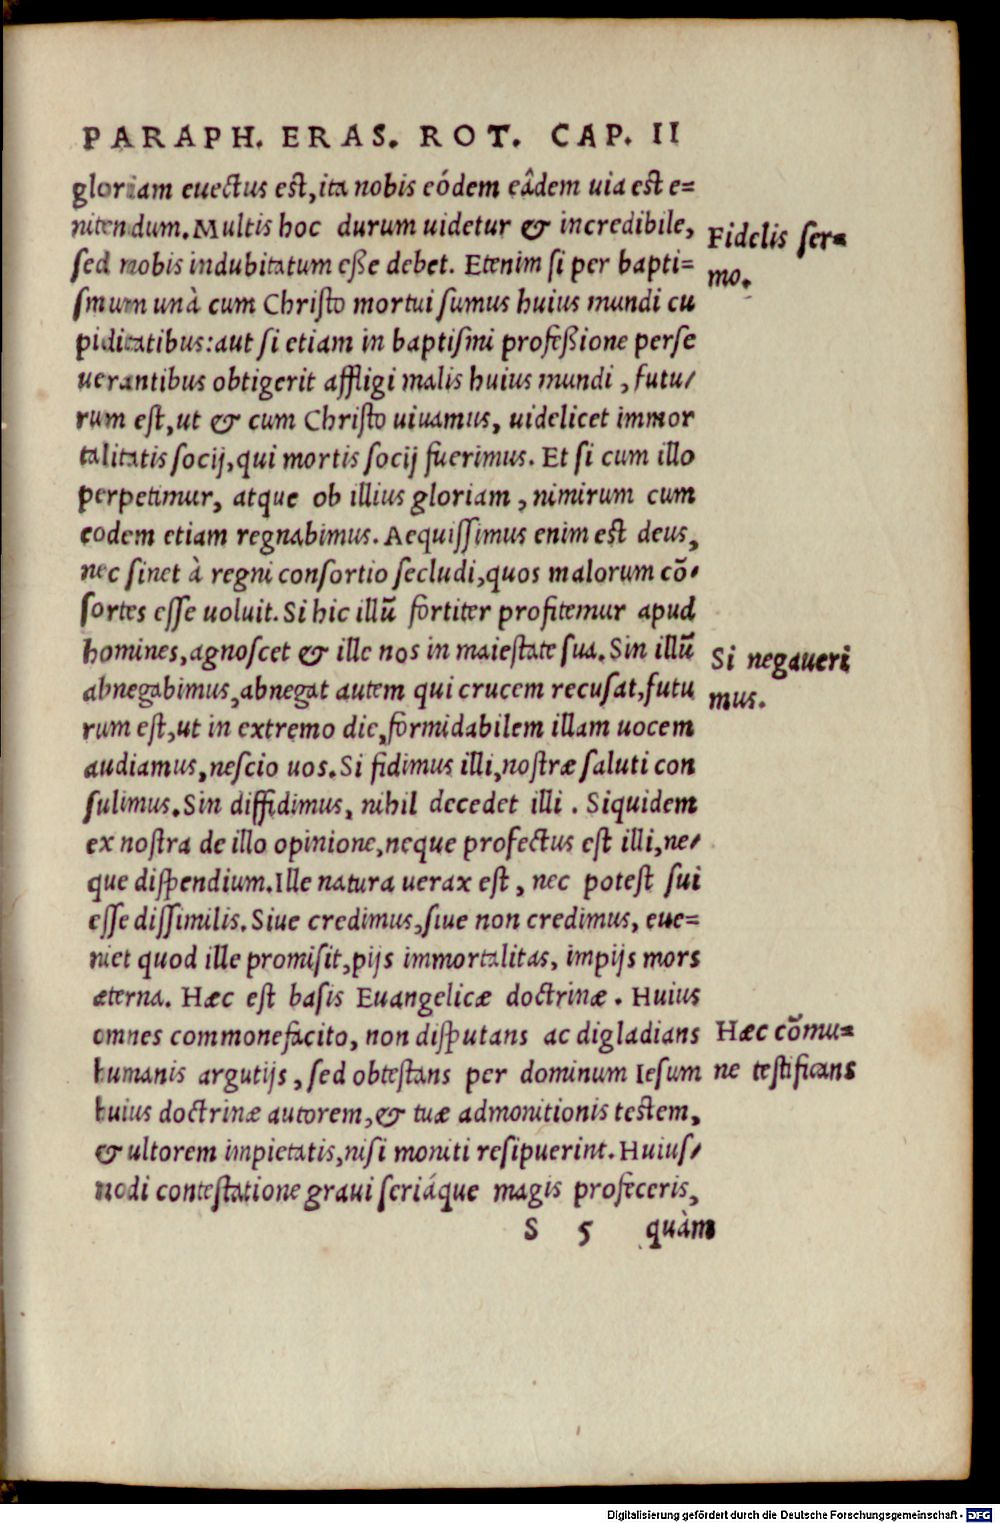 PARAPH. ERAS. ROT. CAP. II
gloriam euectus est, ita nobis eódem eâdem uia est e=
nitendum. Multis hoc durum uidetur & incredibile,
Fidelis ser=
mo.
sed nobis indubitatum eße debet. Etenim si per bapti=
smum unà cum Christo mortui sumus huius mundi cu
piditatibus: aut si etiam in baptismi profeßione perse
uerantibus obtigerit affligi malis huius mundi, futu/
rum est, ut & cum Christo uiuamus, uidelicet immor
talitatis socij, qui mortis socij fuerimus. Et si cum illo
perpetimur, atque ob illius gloriam, nimirum cum
eodem etiam regnabimus. Aequissimus enim est deus,
nec sinet à regni consortio secludi, quos malorum cõ/
sortes esse uoluit. Si hic illũ fortiter profitemur apud
homines, agnoscet & ille nos in maiestate sua. Sin illũ
Si negaueri
mus.
abnegabimus, abnegat autem qui crucem recusat, futu
rum est, ut in extremo die, formidabilem illam uocem
audiamus, nescio uos. Si fidimus illi, nostræ saluti con
sulimus. Sin diffidimus, nihil decedet illi. Siquidem
ex nostra de illo opinione, neque profectus est illi, ne/
que dispendium. Ille natura uerax est, nec potest sui
esse dissimilis. Siue credimus, siue non credimus, eue=
niet quod ille promisit, pijs immortalitas, impijs mors
æterna. Hæc est basis Euangelicæ doctrinæ. Huius
omnes commonefacito, non disputans ac digladians
Hæc cõmu=
ne testificans
humanis argutijs, sed obtestans per dominum Iesum
huius doctrinæ autorem, & tuæ admonitionis testem,
& ultorem impietatis, nisi moniti resipuerint. Huius/
modi contestatione graui seriáque magis profeceris,
S 5 quàm
Digitalisierung gefördert durch die Deutsche Forschungsgemeinschaft - DFG